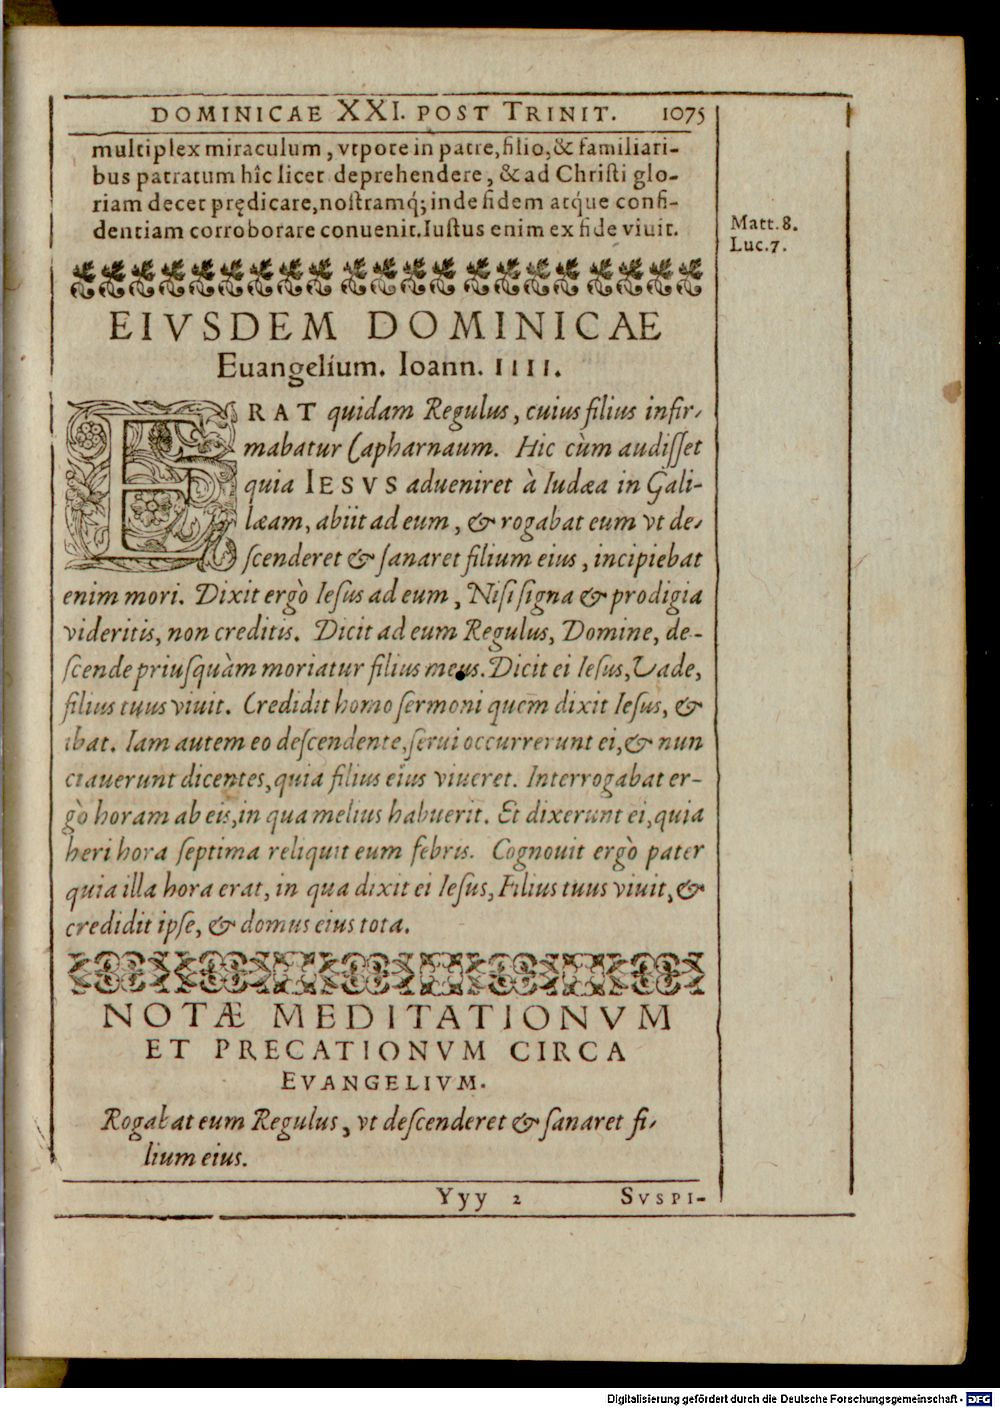 DOMINICAE XXI. POST TRINIT. 1075
multiplex miraculum, vtpote in patre, filio, & familiari-
bus patratum hîc licet deprehendere, & ad Christi glo-
riam decet prędicare, nostramq́; inde fidem atq́ue confi-
dentiam corroborare conuenit. Iustus enim ex fide viuit.
Matt. 8.
Luc. 7.
EIVSDEM DOMINICAE
Euangelium. Ioann. IIII.
ERAT quidam Regulus, cuius filius infir-
mabatur Capharnaum. Hic cùm audiſſet
quia IESVS adueniret à Iudæa in Gali-
læam, abiit ad eum, & rogabat eum vt de-
ſcenderet & ſanaret filium eius, incipiebat
enim mori. Dixit ergò Ieſus ad eum, Niſi ſigna & prodigia
videritis, non creditis. Dicit ad eum Regulus, Domine, de-
ſcende priuſquàm moriatur filius meus. Dicit ei Ieſus, Vade,
filius tuus viuit. Credidit homo ſermoni quem dixit Ieſus, &
ibat. Iam autem eo deſcendente, ſerui occurrerunt ei, & nun
ciauerunt dicentes, quia filius eius viueret. Interrogabat er-
gò horam ab eis, in qua melius habuerit. Et dixerunt ei, quia
heri hora ſeptima reliquit eum febris. Cognouit ergò pater
quia illa hora erat, in qua dixit ei Ieſus, Filius tuus viuit, &
credidit ipſe, & domus eius tota.
NOTÆ MEDITATIONVM
ET PRECATIONVM CIRCA
EVANGELIVM.
Rogabat eum Regulus, vt deſcenderet & ſanaret fi-
lium eius.
Yyy 2 SVSPI-
Digitalisierung gefördert durch die Deutsche Forschungsgemeinschaft - DFG